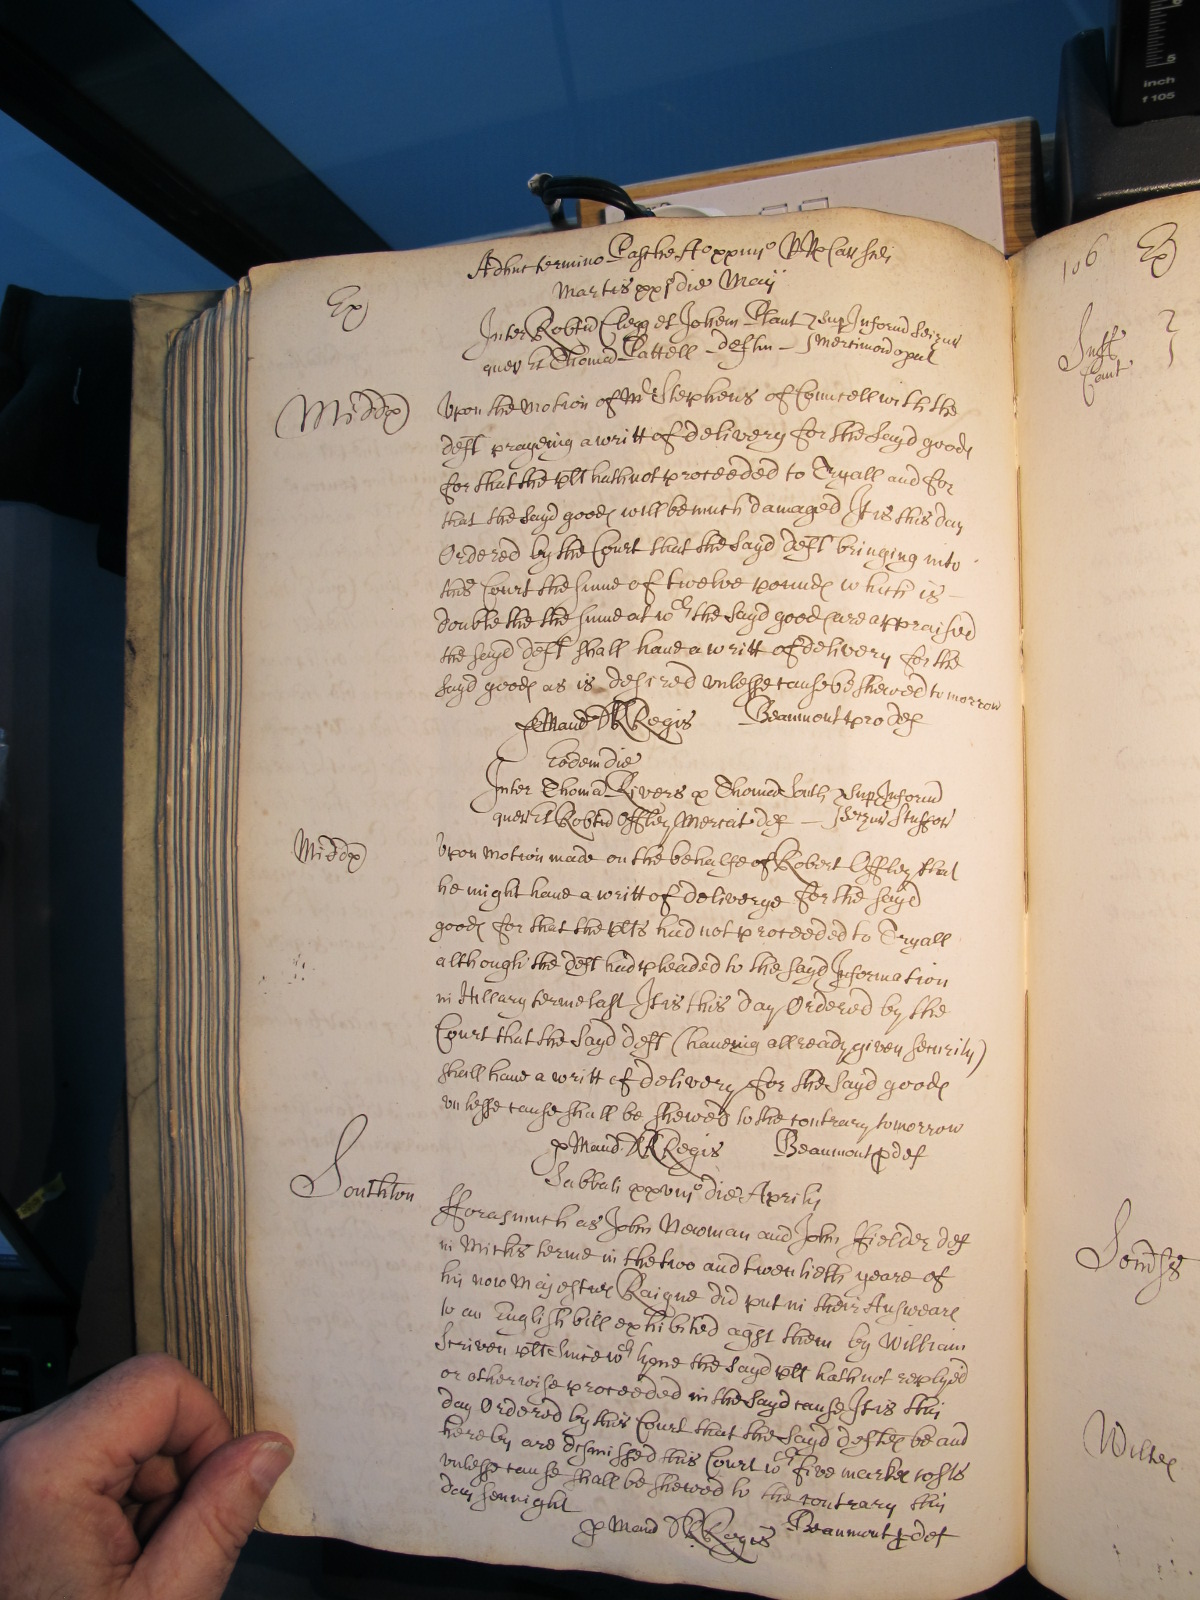 Adhuc termino Pasche Ao xxiiijo RRs Car scdi
Martis xxjo die Maij
Ex
Inter Robtu Clegg et Johem Plant sup Inform Seizur
quer et Thomas Pattell deften Mercimoniorum
Middx
Upon the motion of Mr Stephens of Councell with the
deft prayeing a writt of delivery for the sayd goods
for that the plt hath not proceeded to Tryall and for
that the sayd goods will be much damaged It is this day
Ordered by the Court that the sayd deft bringing into
this Court the summe of twelve pounds which is
double the the sume at wch the sayd goods are appraised
the sayd deft shall have a writt of delivery for the
sayd goods as is desired vnlesse cause be shewed to morrow
p Mand DR Regis Beaumont pro def
Eodem die
Inter Thoma Rivers & Thomas South sup Inform
quer et Robtu Offley Mercat def Seizur Stuffor
Middx
Vpon motion made on the behalfe of Robert Offley that
he might haue a writt of deliverye for the sayd
goods for that the plts had not proceeded to Tryall
although the deft had pleaded to the sayd Information
in Hillary terme last It is this day Ordered by the
Court that the sayd deft (haueing allready given security)
shall haue a writt of delivery for the sayd goods
vnlesse cause shall be shewed to the contrary tomorrow
p Mand DR Regis Beaumont p def
Sabbati xxviijo die Aprilis
Southton
fforasmuch as John Newman and John ffielder def
in Michs terme in the two and twentieth yeare of
his now Majesties Raigne did put in their Answeare
to an English bill exhibited agst them by William
Scriven plt Since wch tyme the sayd plt hath not replyed
or otherwise proceeded in the sayd cause It is this
day Ordered by this Court that the sayd defts be and
hereby are dismissed this Court wth five markes costs
vnlesse cause shall be shewed to the contrary this
day sennight
p Mand DR Regis Beaumont p def
106 Ex
Suff
Cant
Wiltes
inch
f 105